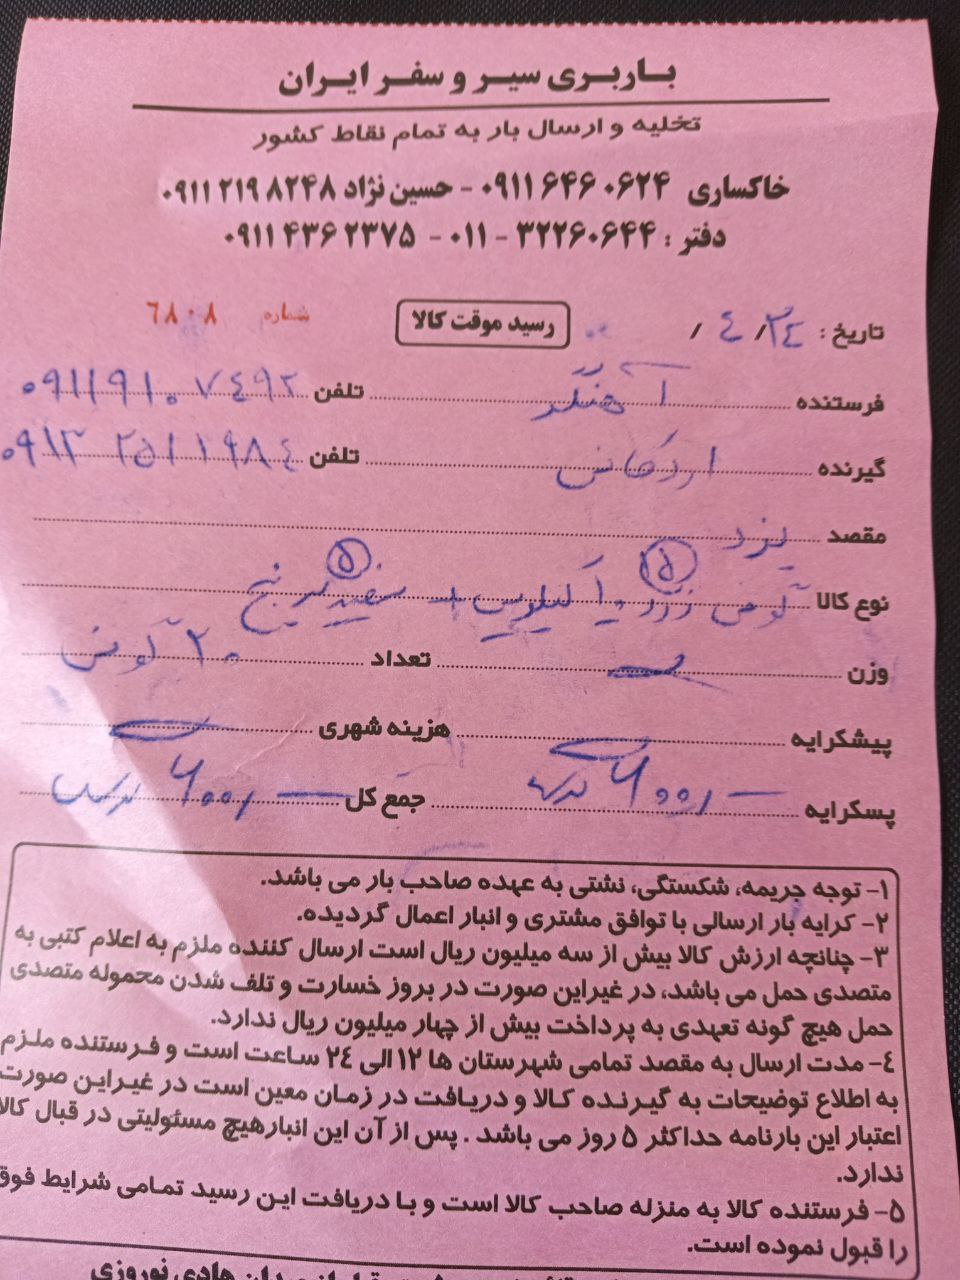 باربری سیر و سفر ایران
تخلیه و ارسال بار به تمام نقاط کشور
خاکساری ۰۹۱۱۶۴۶۰۶۲۴ - حسین نژاد ۰۹۱۱۲۱۹۸۲۴۸
دفتر : ۳۲۲۶۰۶۴۴ - ۰۱۱ - ۰۹۱۱۴۳۶۲۳۷۵
تاریخ : ۲٤/٤/ رسید موقت کالا شماره ٦٨٠٨
فرستنده آهنگر تلفن ۰۹۱۱۹۱۰۷٤۹۲
گیرنده اردکانی تلفن ۰۹۱۳۲۵۱۱۹۸٤
مقصد یزد
نوع کالا ۱۵ + ۵
وزن تعداد ۲۰
پیشکرایه هزینه شهری
پسکرایه ۶۰۰ر جمع کل ۶۰۰ر
۱- توجه جریمه، شکستگی، نشتی به عهده صاحب بار می باشد.
۲- کرایه بار ارسالی با توافق مشتری و انبار اعمال گردیده.
۳- چنانچه ارزش کالا بیش از سه میلیون ریال است ارسال کننده ملزم به اعلام کتبی به
متصدی حمل می باشد، در غیراین صورت در بروز خسارت و تلف شدن محموله متصدی
حمل هیچ گونه تعهدی به پرداخت بیش از چهار میلیون ریال ندارد.
٤- مدت ارسال به مقصد تمامی شهرستان ها ۱۲ الی ۲٤ ساعت است و فرستنده ملزم
به اطلاع توضیحات به گیرنده کالا و دریافت در زمان معین است در غیراین صورت
اعتبار این بارنامه حداکثر ۵ روز می باشد . پس از آن این انبارهیچ مسئولیتی در قبال کالا
ندارد.
۵- فرستنده کالا به منزله صاحب کالا است و با دریافت این رسید تمامی شرایط فوق
را قبول نموده است.
هادی نوروزی